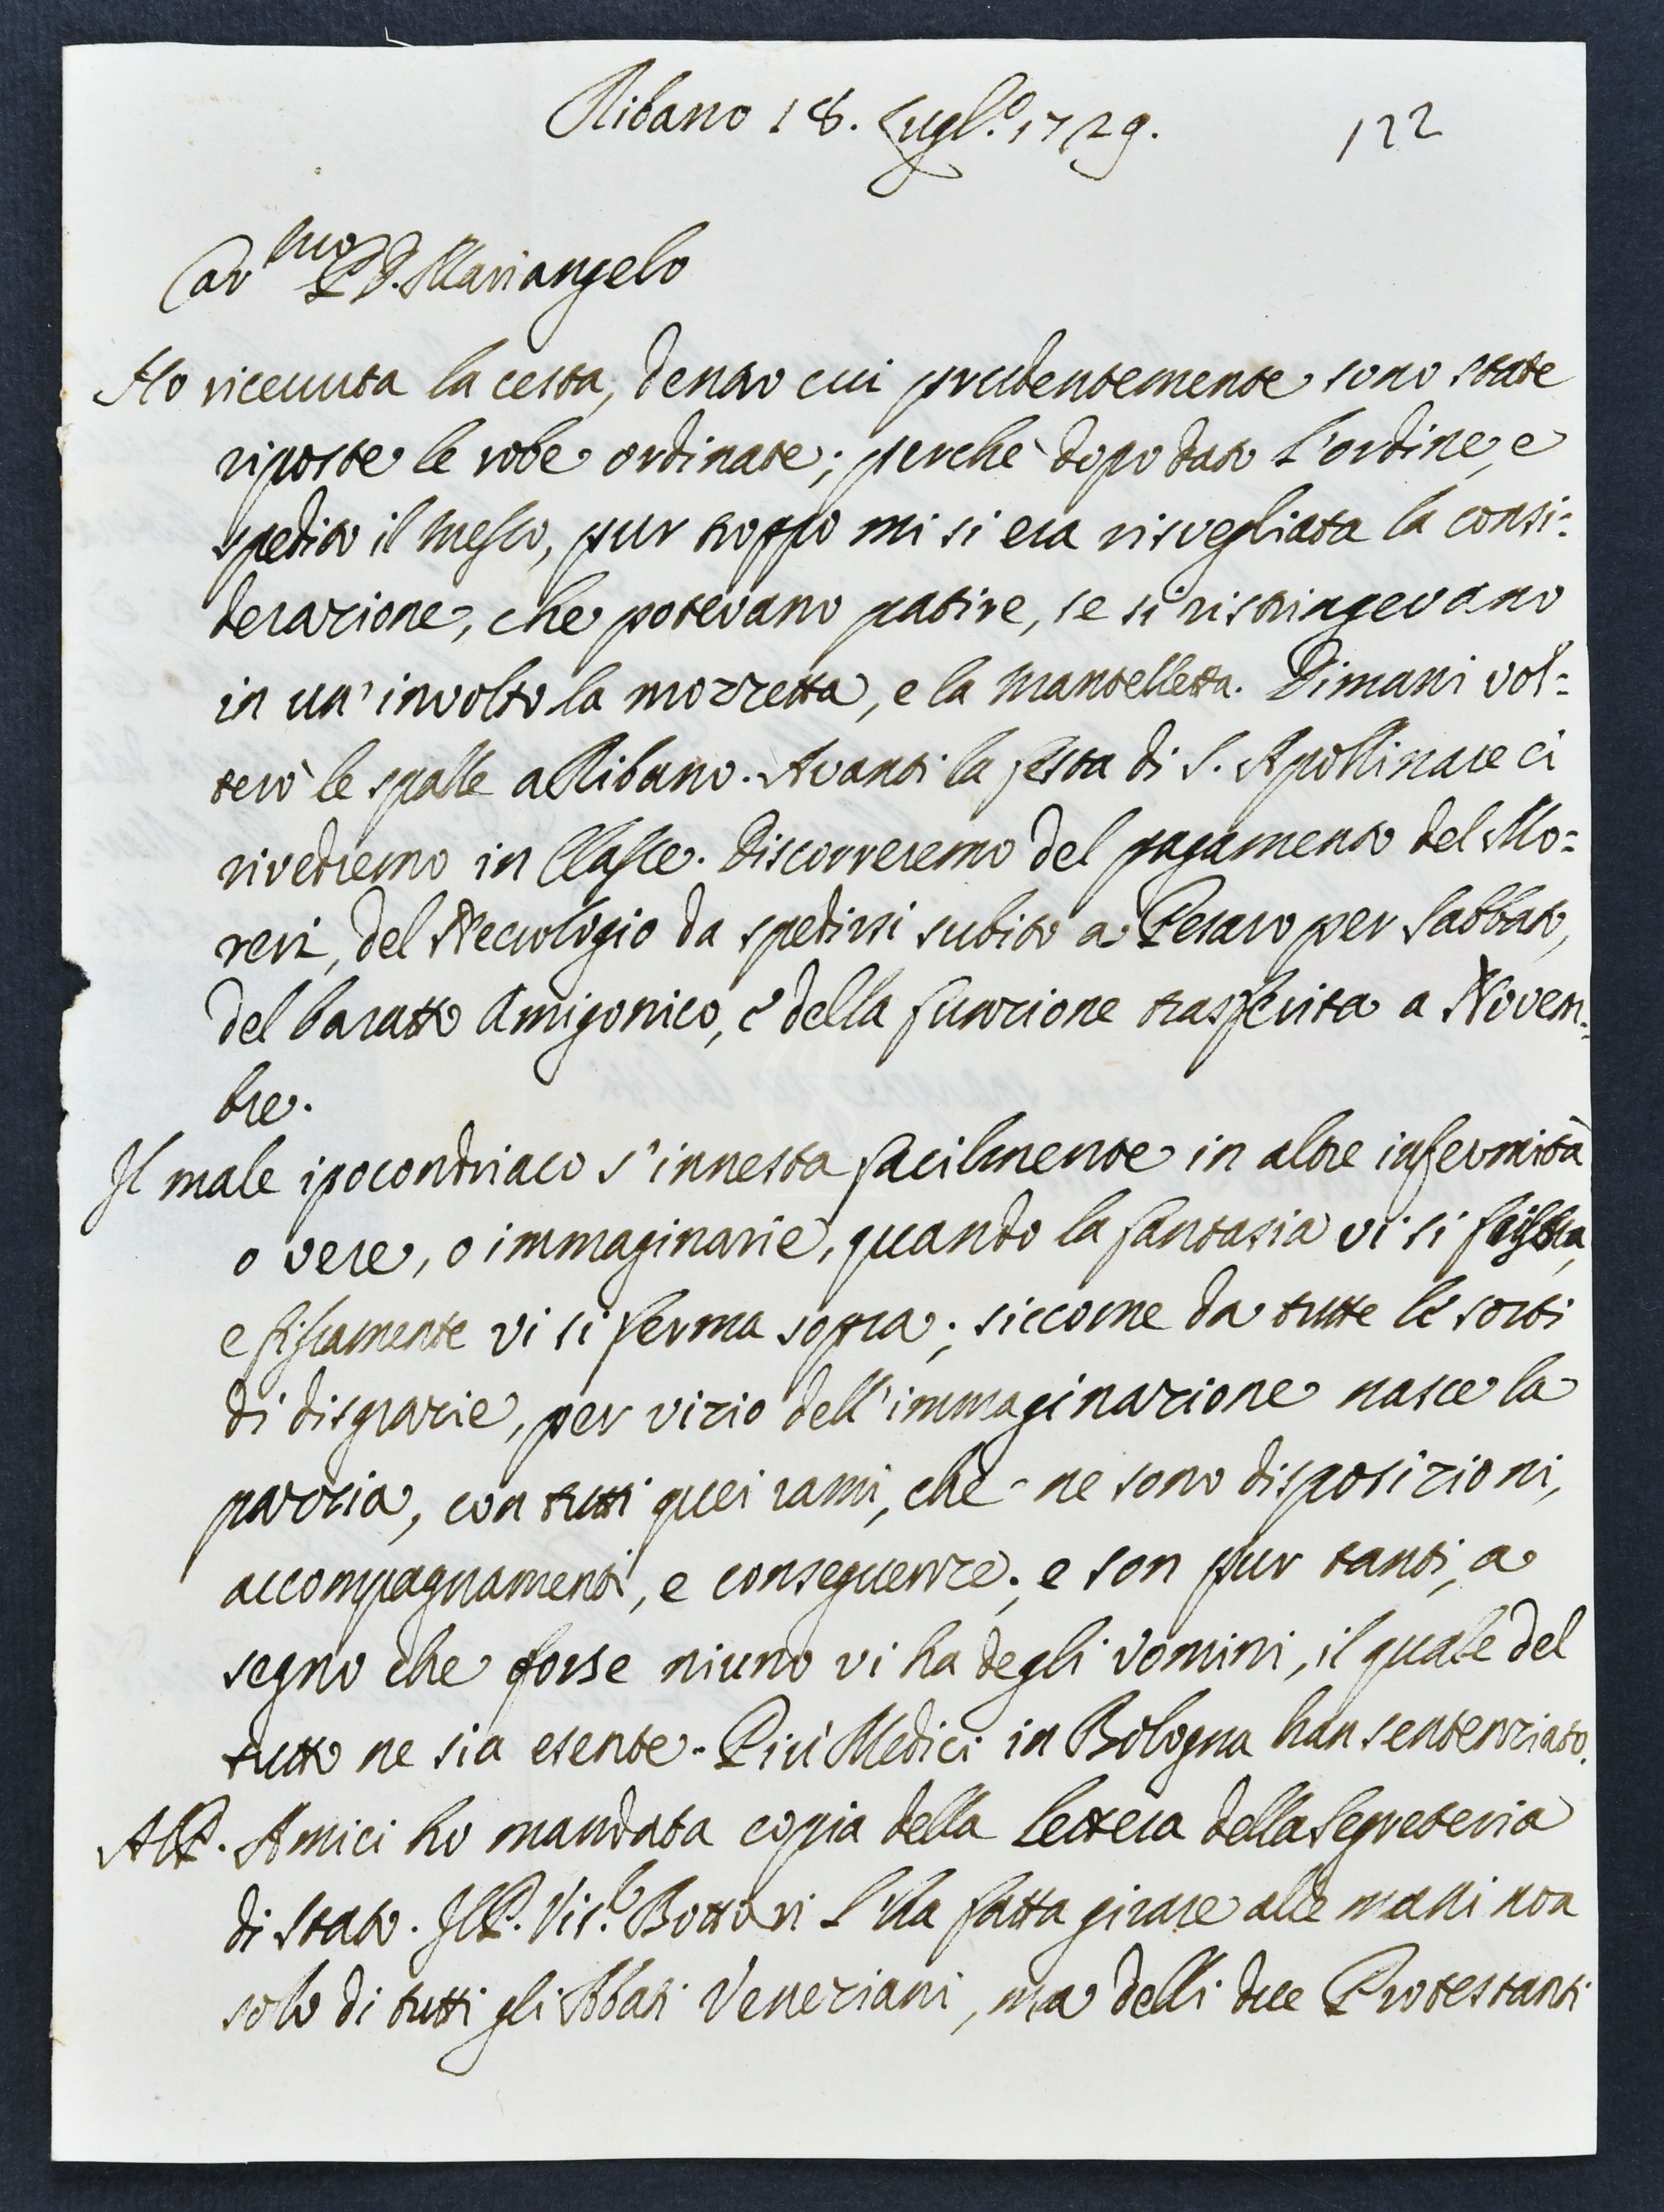 Ribano 18. Lugl.o 1729.
122
Car.mo P. D. Mariangelo
Ho riceuuta la cesta, dentro cui prudentemente sono state
riposte le robe ordinate; perchè dopo dato l'ordine, e
spedito il messo, pur troppo mi si era risvegliata la consi=
derazione, che potevano patire, se si ristringevano
in un' involto la mozzetta, e la mantelletta. Dimani vol=
terò le spalle a Ribano. Avanti la festa di S. Apollinare ci
rivedremo in Classe. Discorreremo del pagamento del Mo=
reri, del Necrologio da spedirsi subito a Pesaro per Sabbato,
del baratto Amigonico, e della funzione trasferita a Novem=
bre.
Il male ipocondriaco s'innesta facilmente in altre infermità
o vere, o immaginarie, quando la fantasia vi si
e fissamente vi si ferma sopra; siccome da tutte le sorti
di disgrazie, per vizio dell'immaginazione nasce la
pazzia, con tutti quei rami, che ne sono disposizioni,
accompagnamenti, e conseguenze; e son pur tanti, a
segno che forse niuno vi ha degli vomini, il quale del
tutto ne sia esente. Più Medici in Bologna han sentenziato.
Al P. Amici ho mandata copia della lettera della Segreteria
di Stato. Il P. Vis.e Bottoni l'ha fatta girare alle mani non
solo di tutti gli Abbati Veneziani, ma delli due Protestanti